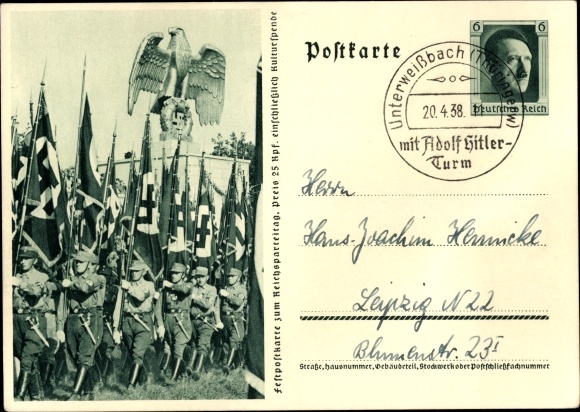 Postkarte
6 6
Deutsches Reich
Unterweißbach (Thüringerw)
20.4.38.
mit Adolf Hitler-
Turm
Festpostkarte zum Reichsparteitag. Preis 25 Rpf. einschließlich Kulturspende
Herrn
Hans-Joachim Hennicke
Leipzig N 22
Blumenstr. 23 I
Straße, Hausnummer, Gebäudeteil, Stockwerk oder Postschließfachnummer